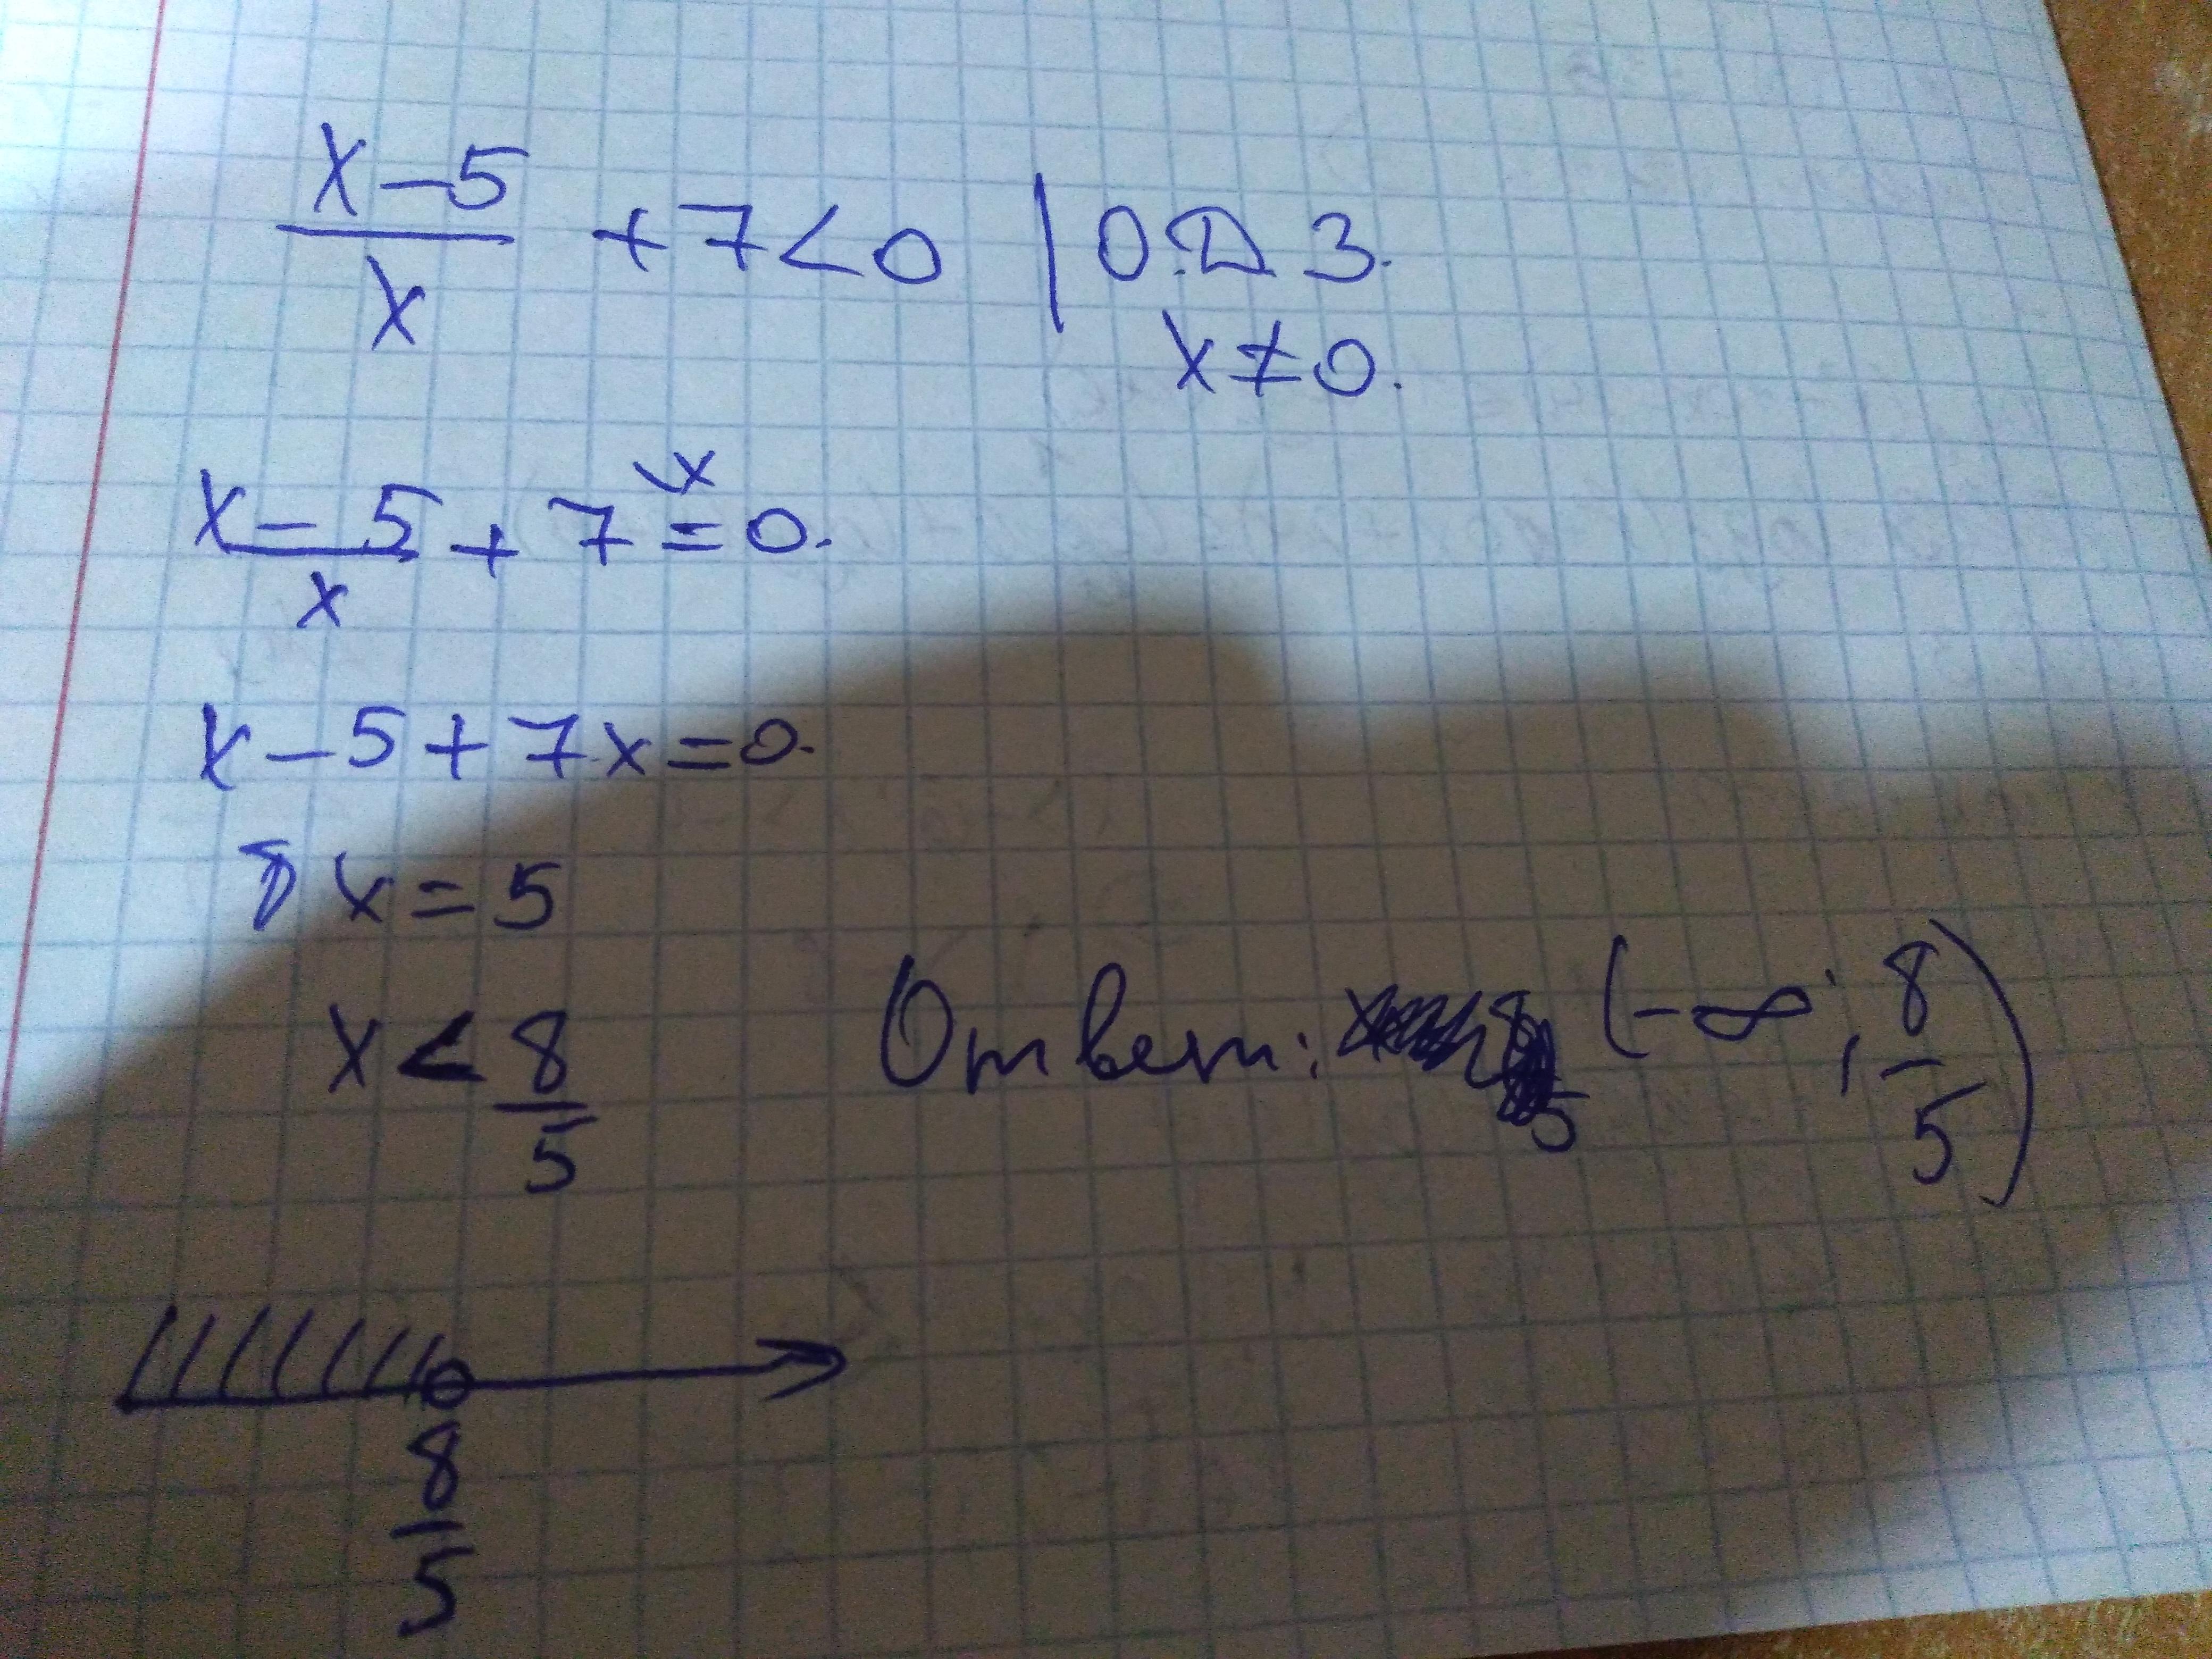 x-5/x +7<0 | О.Д.З.
x≠0.
x-5/x + 7 \x =0.
x-5+7x=0.
8x=5
x < 8/5
Ответ: (-∞; 8/5)
8/5